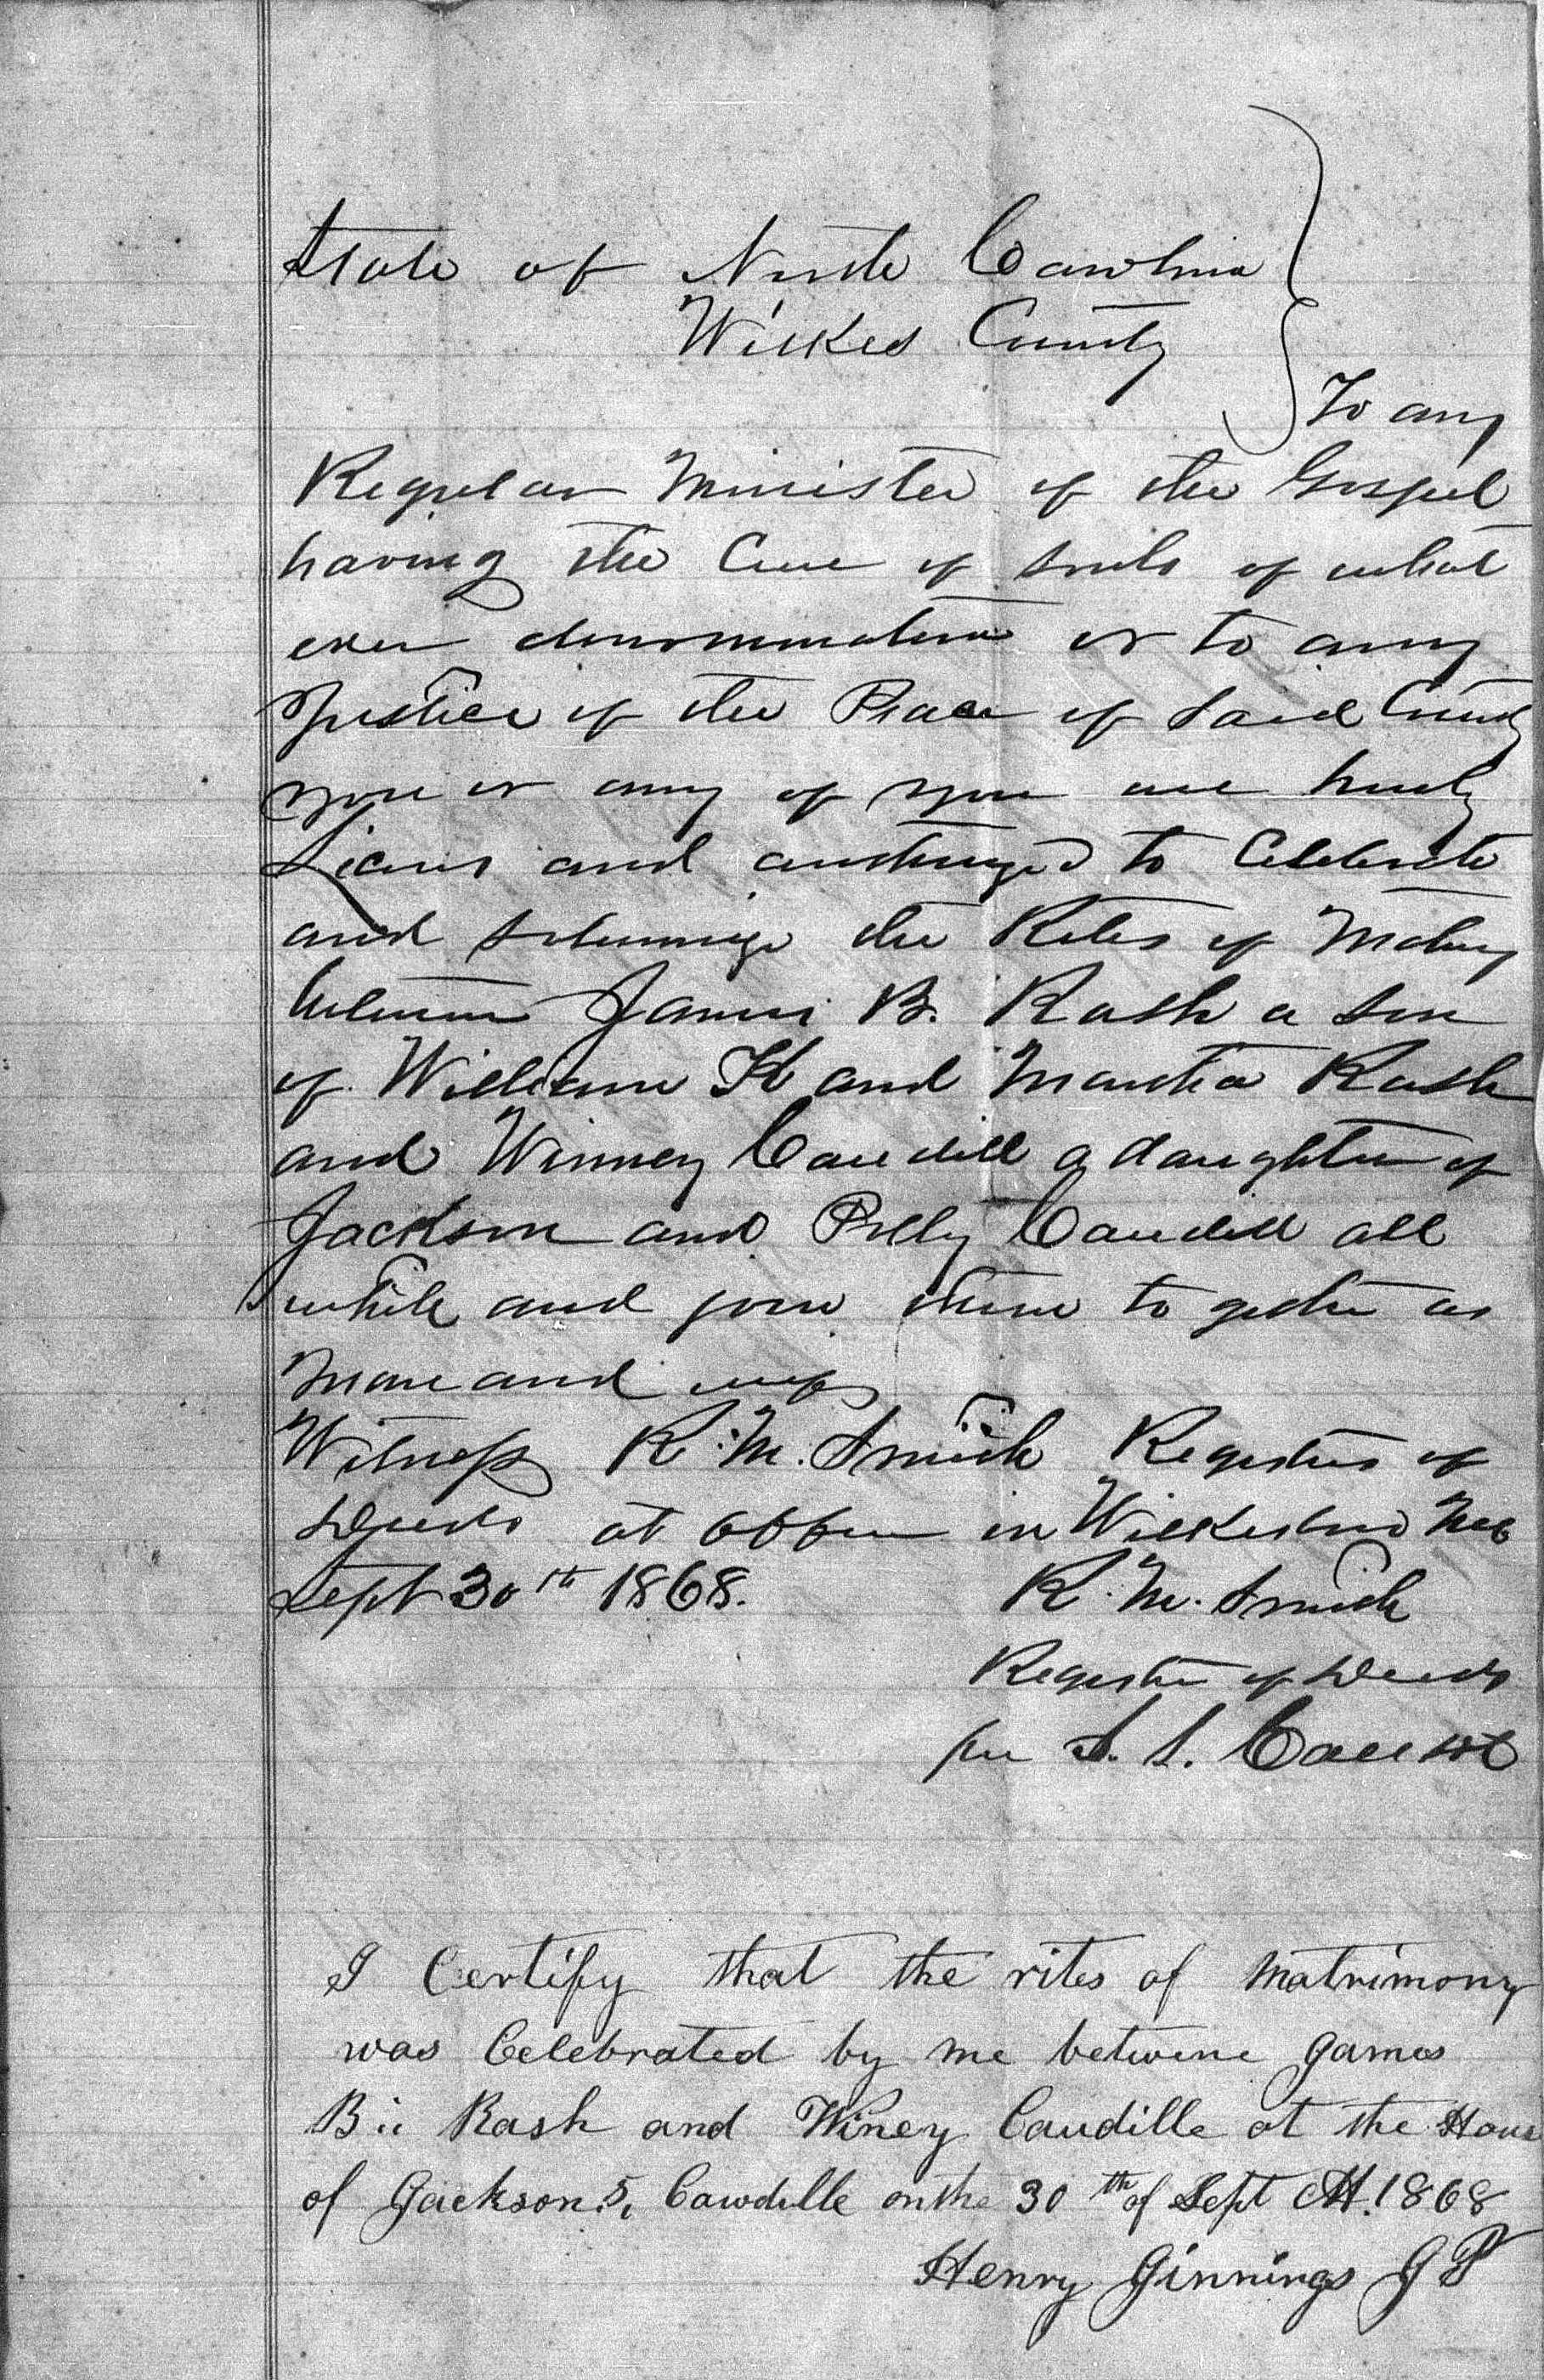 State of North Carolina
Wilkes County
To any
Regular Minister of the Gospel
having the Cure of Souls of what
ever denomination or to any
Justice of the Peace of Said County
you or any of you are hereby
and authorized to Celebrate
and solemnize the Rites of
between James B. Rash a Son
of William H and Martha Rash
and Winney Caudill a daughter of
Jackson and Polly Caudill all
white and join them to gether as
man and wife
Witness R. M. Smith Register of
Deeds at office in Wilkesboro NC
Sept 30th 1868.
R. M. Smith
Register of Deeds
per S. S.
I Certify that the rites of Matrimony
was Celebrated by me betwene James
B Rash and Winey Caudille at the Hous
of Jackson Cawdille on the 30th of Sept 1868
Henry Jinnings JP